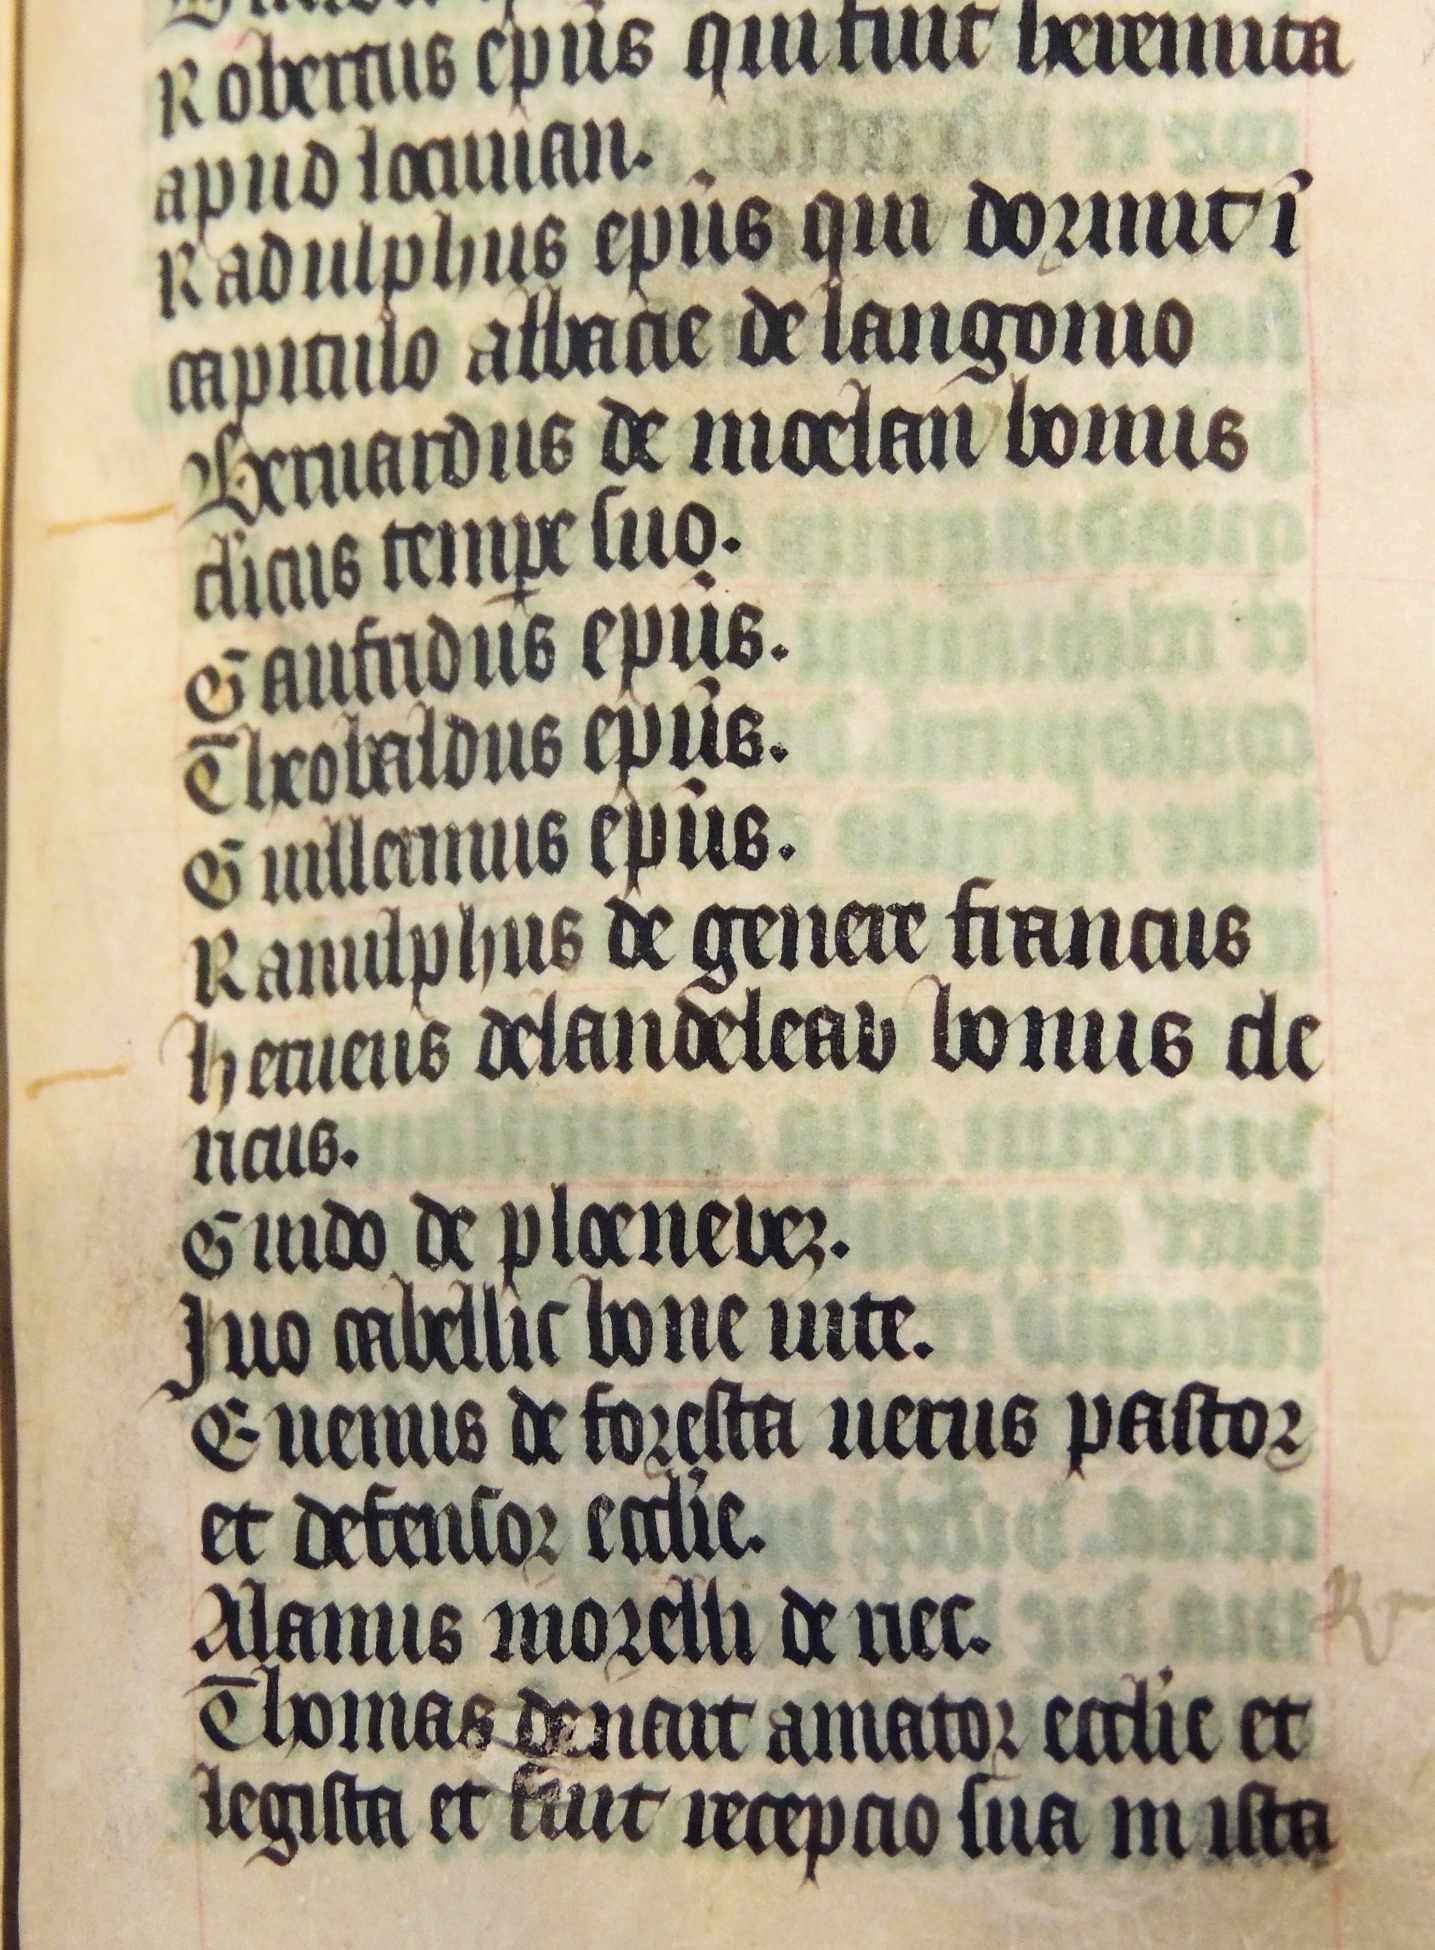 Robertus epūs qui fuit heremita
apud locuuan.
Radulphus epūs qui dormit ī
capitulo abbacie de langonio
Bernardus de moelan bonus
cl'icus temꝑe suo.
Gaufridus epūs.
Theobaldus epūs.
Guillermus epūs.
Ranulphus de genere francus
herueus de landeleav bonus cle
ricus.
Guido de ploenevez.
Juo cabellic bone uite.
Euenus de foresta uerus pastor
et defensor eccl'ie.
Alanus morelli de riec.
Thomas denart amator eccl'ie et
legista et fuit recepcio sua in ista